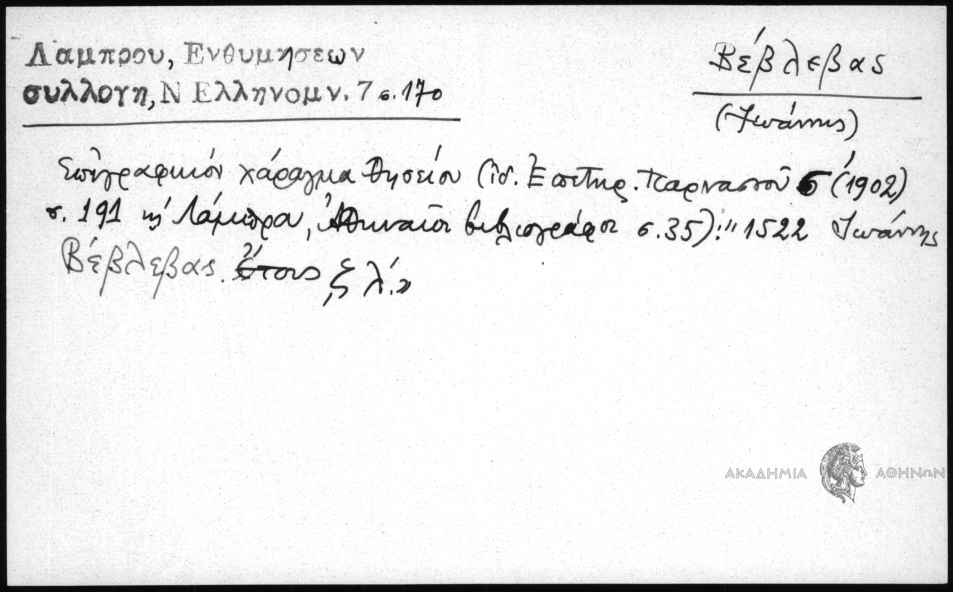 Λαμπρου, Ενθυμησεων
συλλογη, Ν Ελληνομν. 7 σ. 170
Βέβλεβας
(Ἰωάννης)
Ἐπιγραφικόν χάραγμα Θησείου (ἰδ. Ἐπετηρ. Παρνασσοῦ 6 (1902)
σ. 191 κ' Λάμπρου, Ἀθηναῖοι βιβλιογράφοι σ. 35): "1522 Ἰωάννης
Βέβλεβας. ἔτους ,ζ λ'."
ΑΚΑΔΗΜΙΑ ΑΘΗΝΩΝ